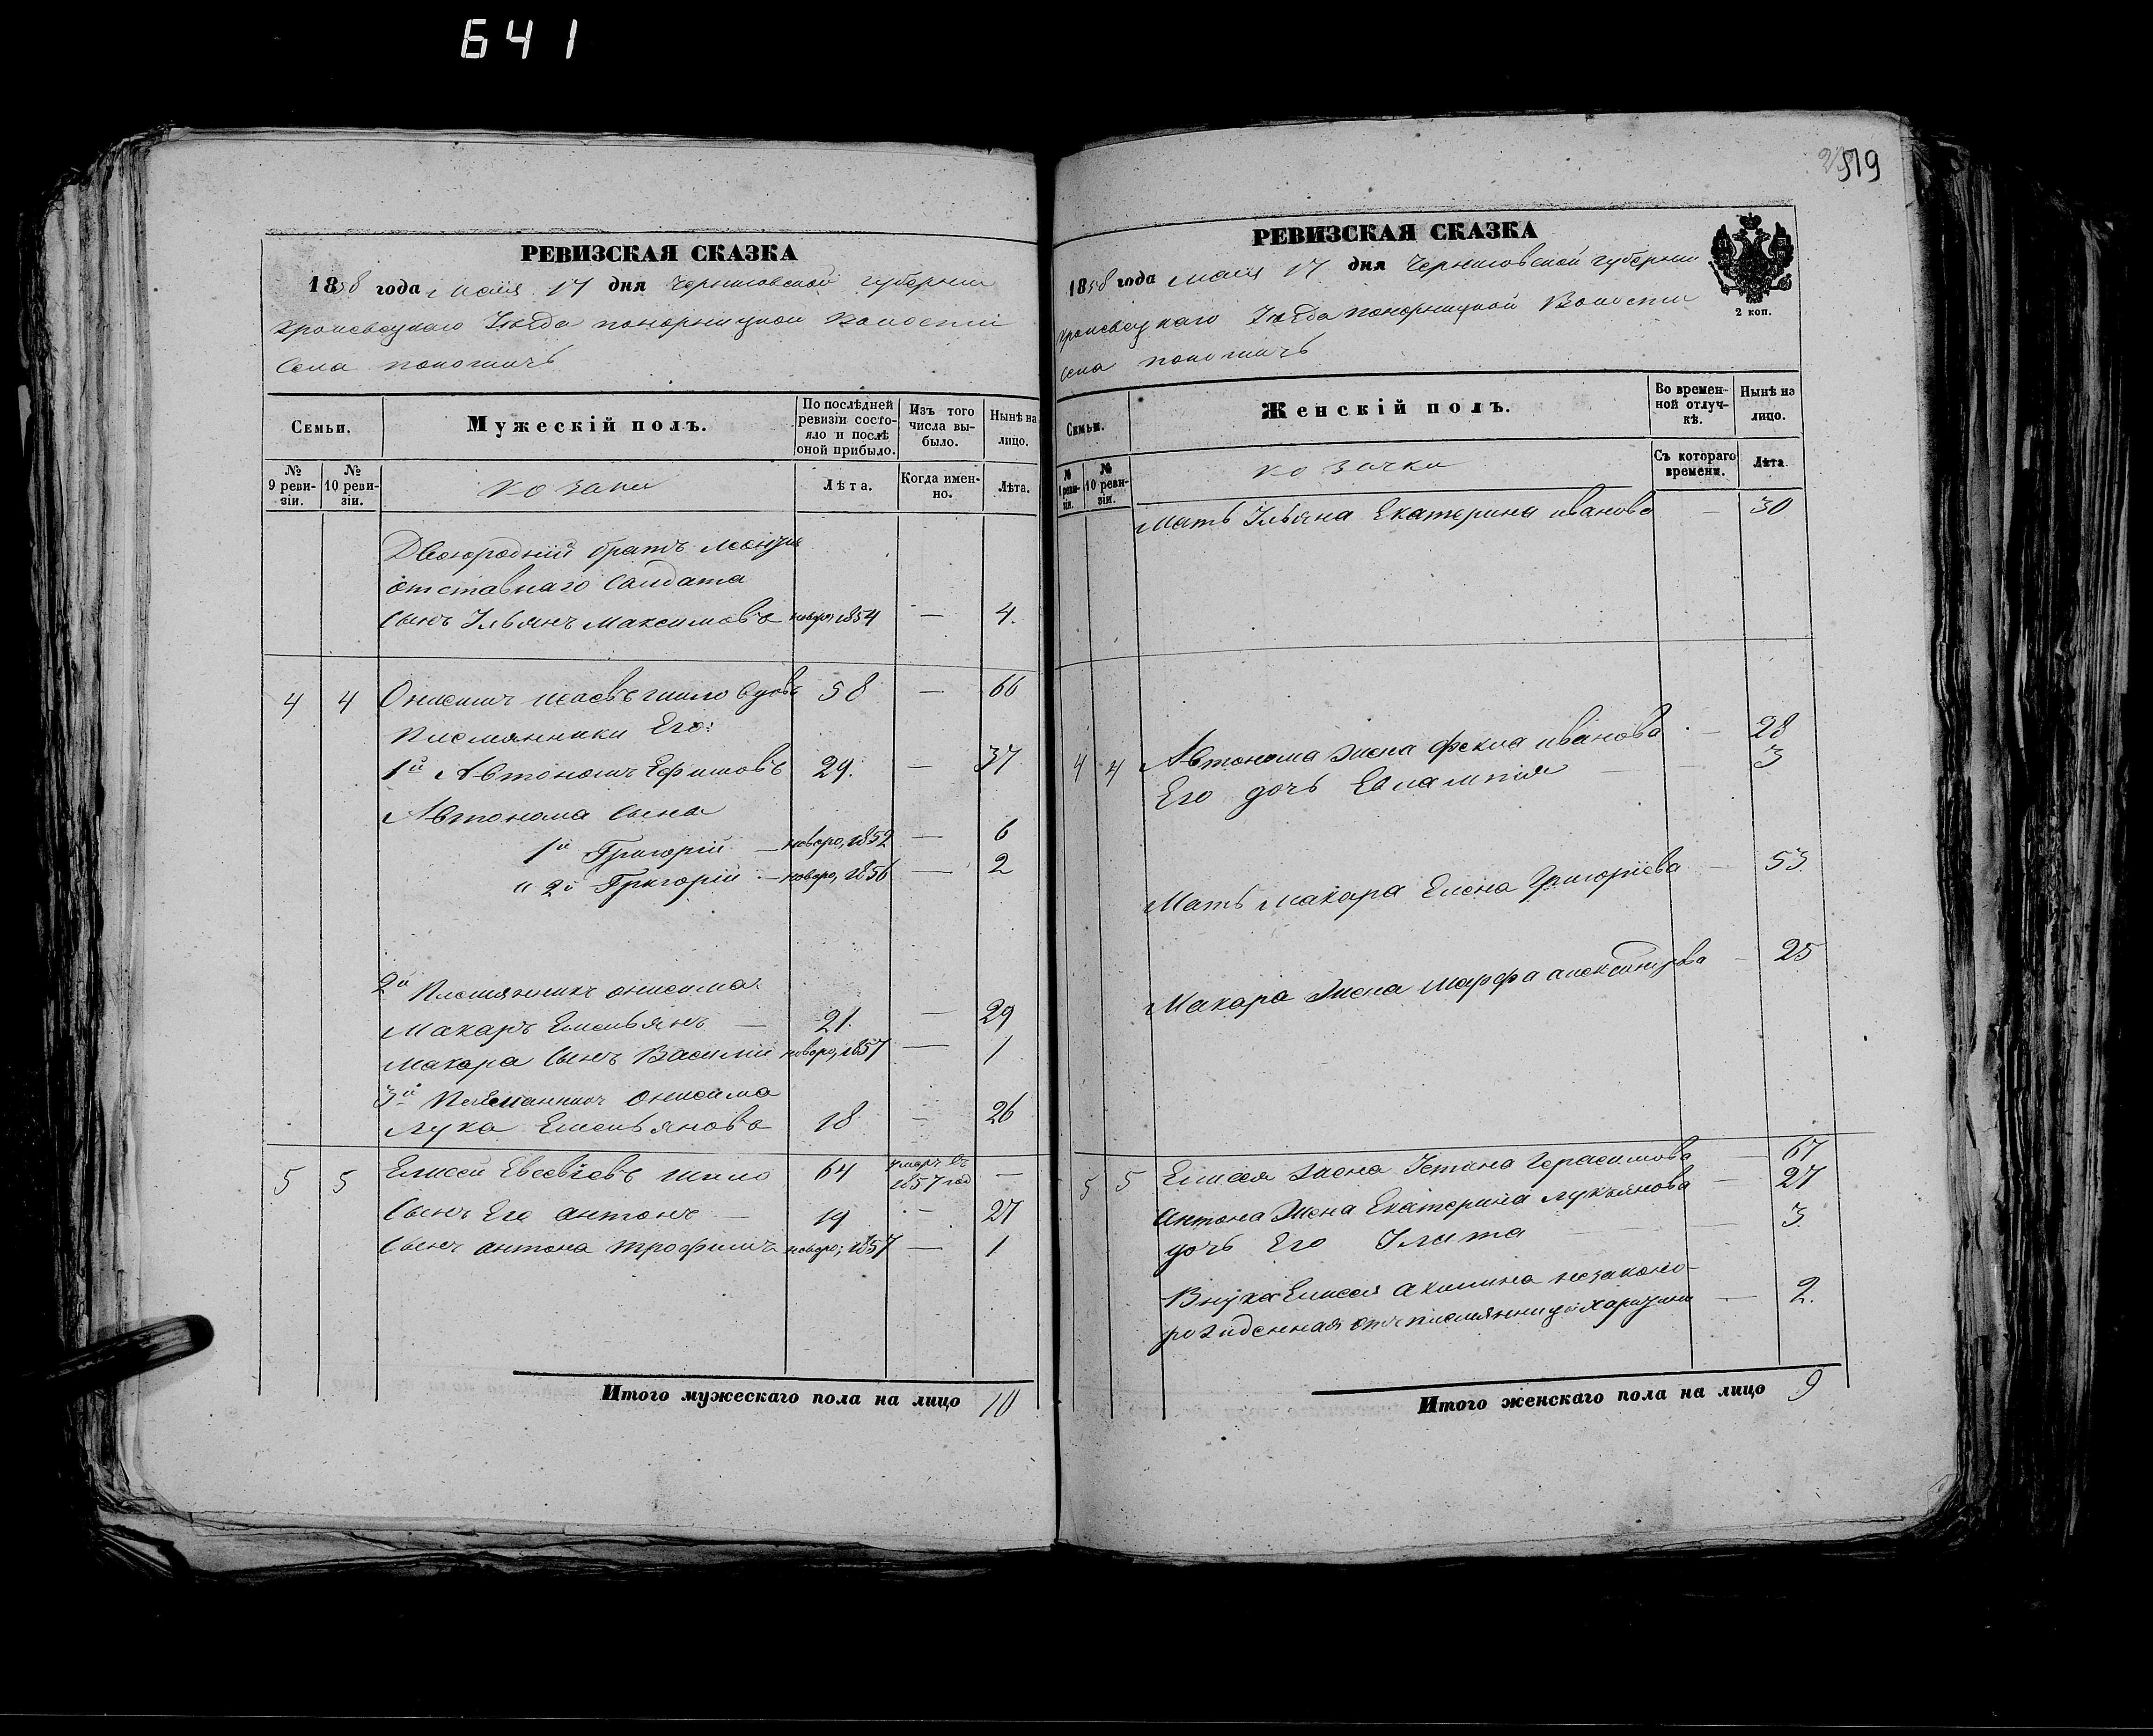 641
РЕВИЗСКАЯ СКАЗКА
1858 года мая 17 дня Черниговской губернии
Кролевецкаго Уѣзда понорницкой Волости
Села
Семьи.
Мужескій полъ.
По послѣдней ревизіи состояло и послѣ оной прибыло.
Изъ того числа выбыло.
Нынѣ на лицо.
№ 9 ревизіи.
№ 10 ревизіи.
козаки
Лѣта.
Когда именно.
Лѣта.
Двоюродній братъ
отставнаго Салдата
Сынъ Ульянъ Максимовъ новоро; 1854 — 4.
4 4 Онисимъ шило 58 — 66
Племянники Его:
1й Автономъ Ефимовъ 29. — 37
Автонома Сына
1й Григорій — новоро, 1852 — 6
" 2й Григорій — новоро, 1856 — 2
2й Племянникъ онисима
Макаръ Емельянъ — 21. — 29
Макара Сынъ Василій новоро, 1857 — 1
3й онисима
Лука Емельяновъ 18 — 26
5 5 Елисей Евсевіевъ шило 64 умеръ въ 1857 год —
Сынъ Его антонъ — 19 — 27
Сынъ антона трофимъ новоро; 1857 — 1
Итого мужескаго пола на лицо 10
519
РЕВИЗСКАЯ СКАЗКА
1858 года мая 17 дня Черниговской губернии
Кролевецкаго Уѣзда понорницкой Волости
2 коп.
Села
Семьи.
Женскій полъ.
Во временной отлучкѣ.
Нынѣ на лицо.
№ 10 ревизіи.
козачки
Съ котораго времени.
Лѣта.
Мать Ульяна Екатерина иванова — 30
4 4 Автонома жена фекла иванова — 28
Его дочь Евлампія — 3
Мать макара Елена Григоріева — 53
Макара жена марфа — 25
5 5 Елисея жена Устина Герасимова — 67
Антона жена Екатерина лукьянова — 27
дочь Его Улита — 3
Внука Елисея акилина незаконо-
рожденная отъ племянницы — 2.
Итого женскаго пола на лицо 9